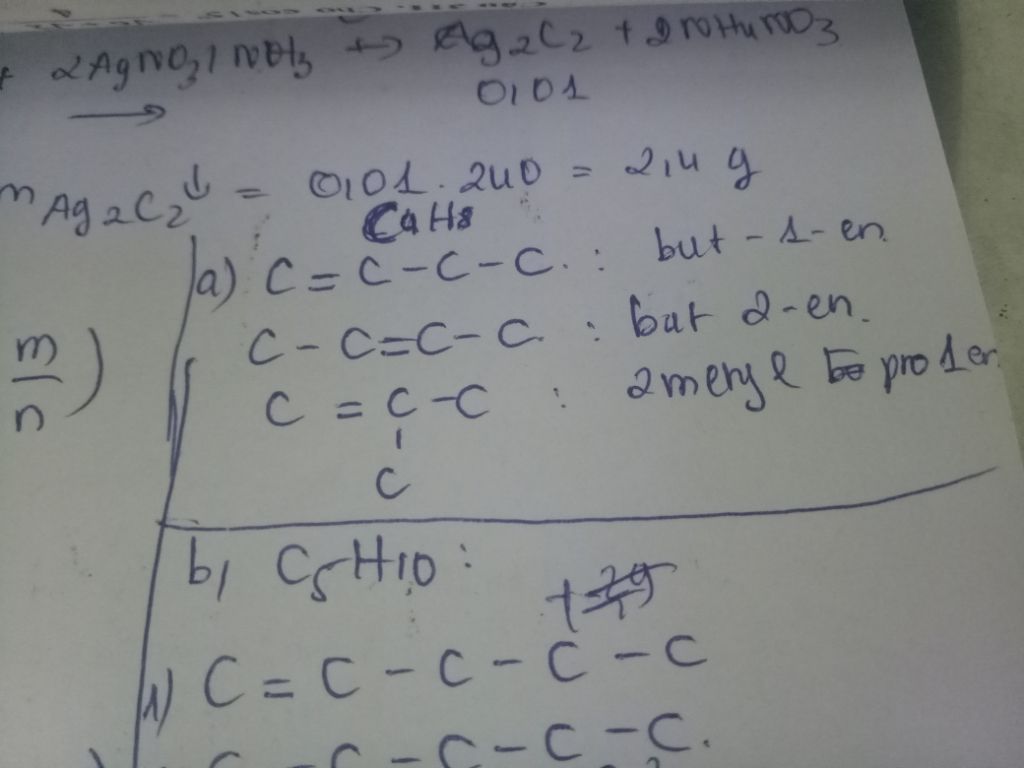 2AgNO3/NH3 → Ag2C2 + 2NH4NO3
→ 0,01
m Ag2C2 ↓ = 0,01 . 240 = 2,4 g
C4H8
a) C = C - C - C. : but - 1 - en.
C - C = C - C. : but 2 - en.
m/n )
C = C - C : 2 metyl pro 1 en.
C
b, C5H10 :
1) C = C - C - C - C
C - C - C - C.